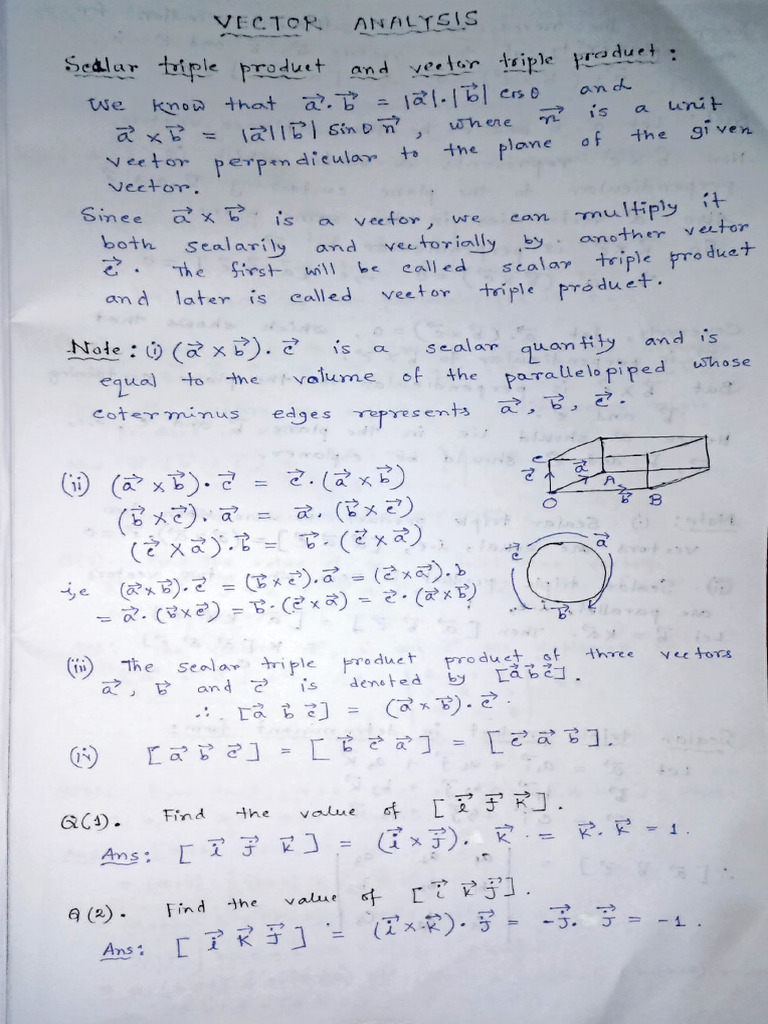 VECTOR ANALYSIS
Scalar triple product and vector triple product :
We know that a⃗ . b⃗ = |a⃗| . |b⃗| cosθ and
a⃗ × b⃗ = |a⃗||b⃗| sinθ n⃗ , where n⃗ is a unit
vector perpendicular to the plane of the given
vector.
Since a⃗ × b⃗ is a vector, we can multiply it
both scalarily and vectorially by another vector
c⃗ . The first will be called scalar triple product
and later is called vector triple product.
Note : (i) (a⃗ × b⃗) . c⃗ is a scalar quantity and is
equal to the volume of the parallelopiped whose
coterminus edges represents a⃗ , b⃗ , c⃗ .
(ii) (a⃗ × b⃗) . c⃗ = c⃗ . (a⃗ × b⃗)
(b⃗ × c⃗) . a⃗ = a⃗ . (b⃗ × c⃗)
(c⃗ × a⃗) . b⃗ = b⃗ . (c⃗ × a⃗)
C
c⃗ a⃗ A
O b⃗ B
i,e (a⃗ × b⃗) . c⃗ = (b⃗ × c⃗) . a⃗ = (c⃗ × a⃗) . b
= a⃗ . (b⃗ × c⃗) = b⃗ . (c⃗ × a⃗) = c⃗ . (a⃗ × b⃗)
c⃗ a⃗
b⃗
(iii) The scalar triple product product of three vectors
a⃗ , b⃗ and c⃗ is denoted by [a⃗ b⃗ c⃗] .
∴ [a⃗ b⃗ c⃗] = (a⃗ × b⃗) . c⃗ .
(iv) [a⃗ b⃗ c⃗] = [b⃗ c⃗ a⃗] = [c⃗ a⃗ b⃗] .
Q(1). Find the value of [i⃗ j⃗ k⃗] .
Ans : [i⃗ j⃗ k⃗] = (i⃗ × j⃗) . k⃗ = k⃗ . k⃗ = 1 .
Q(2). Find the value of [i⃗ k⃗ j⃗] .
Ans : [i⃗ k⃗ j⃗] = (i⃗ × k⃗) . j⃗ = -j⃗ . j⃗ = -1 .